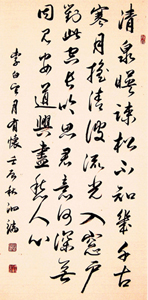 清泉暎疎松不知幾千古
寒月搖清波流光入窓戶
對此空長吟思君意何深無
因見安道興盡愁人心
李白望月有懷壬辰秋